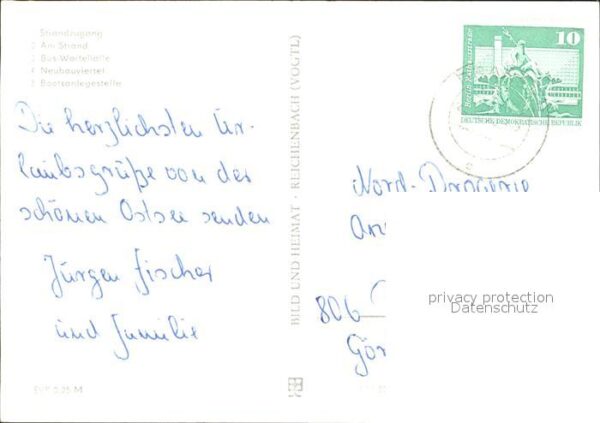 Strandzugang
2 Am Strand
3 Bus-Wartehalle
4 Neubauviertel
5 Bootsanlegestelle
Die herzlichsten Ur-
laubsgrüße von der
schönen Ostsee senden
Jürgen Fischer
und Familie
EVP 0,25 M
BILD UND HEIMAT · REICHENBACH (VOGTL)
10
Berlin, Rathausstraße
DEUTSCHE DEMOKRATISCHE REPUBLIK
Nord-Drogerie
806
Gör
privacy protection
Datenschutz